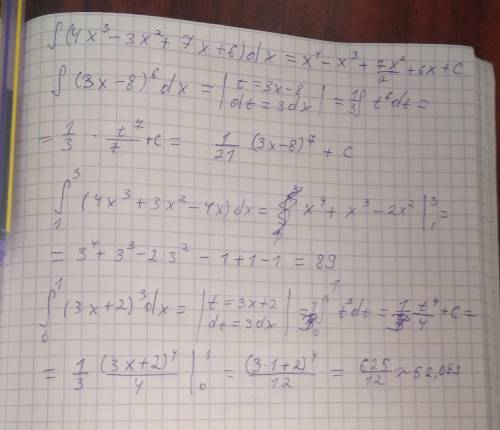 ∫(4x³-3x²+7x+6)dx=x⁴-x³+7x²/2+6x+C
∫(3x-8)⁶dx=|t=3x-8 dt=3dx|=1/3∫t⁶dt=
=1/3·t⁷/7+C= 1/21 (3x-8)⁷+C
∫₁³(4x³+3x²-4x)dx= x⁴+x³-2x²|₁³=
=3⁴+3³-2·3²-1+1-1=89
∫₀¹(3x+2)³dx=|t=3x+2 dt=3dx|=1/3∫₀¹t³dt=1/3 t⁴/4+C=
=1/3 (3x+2)⁴/4|₀¹=(3·1+2)⁴/12=625/12≈52,083